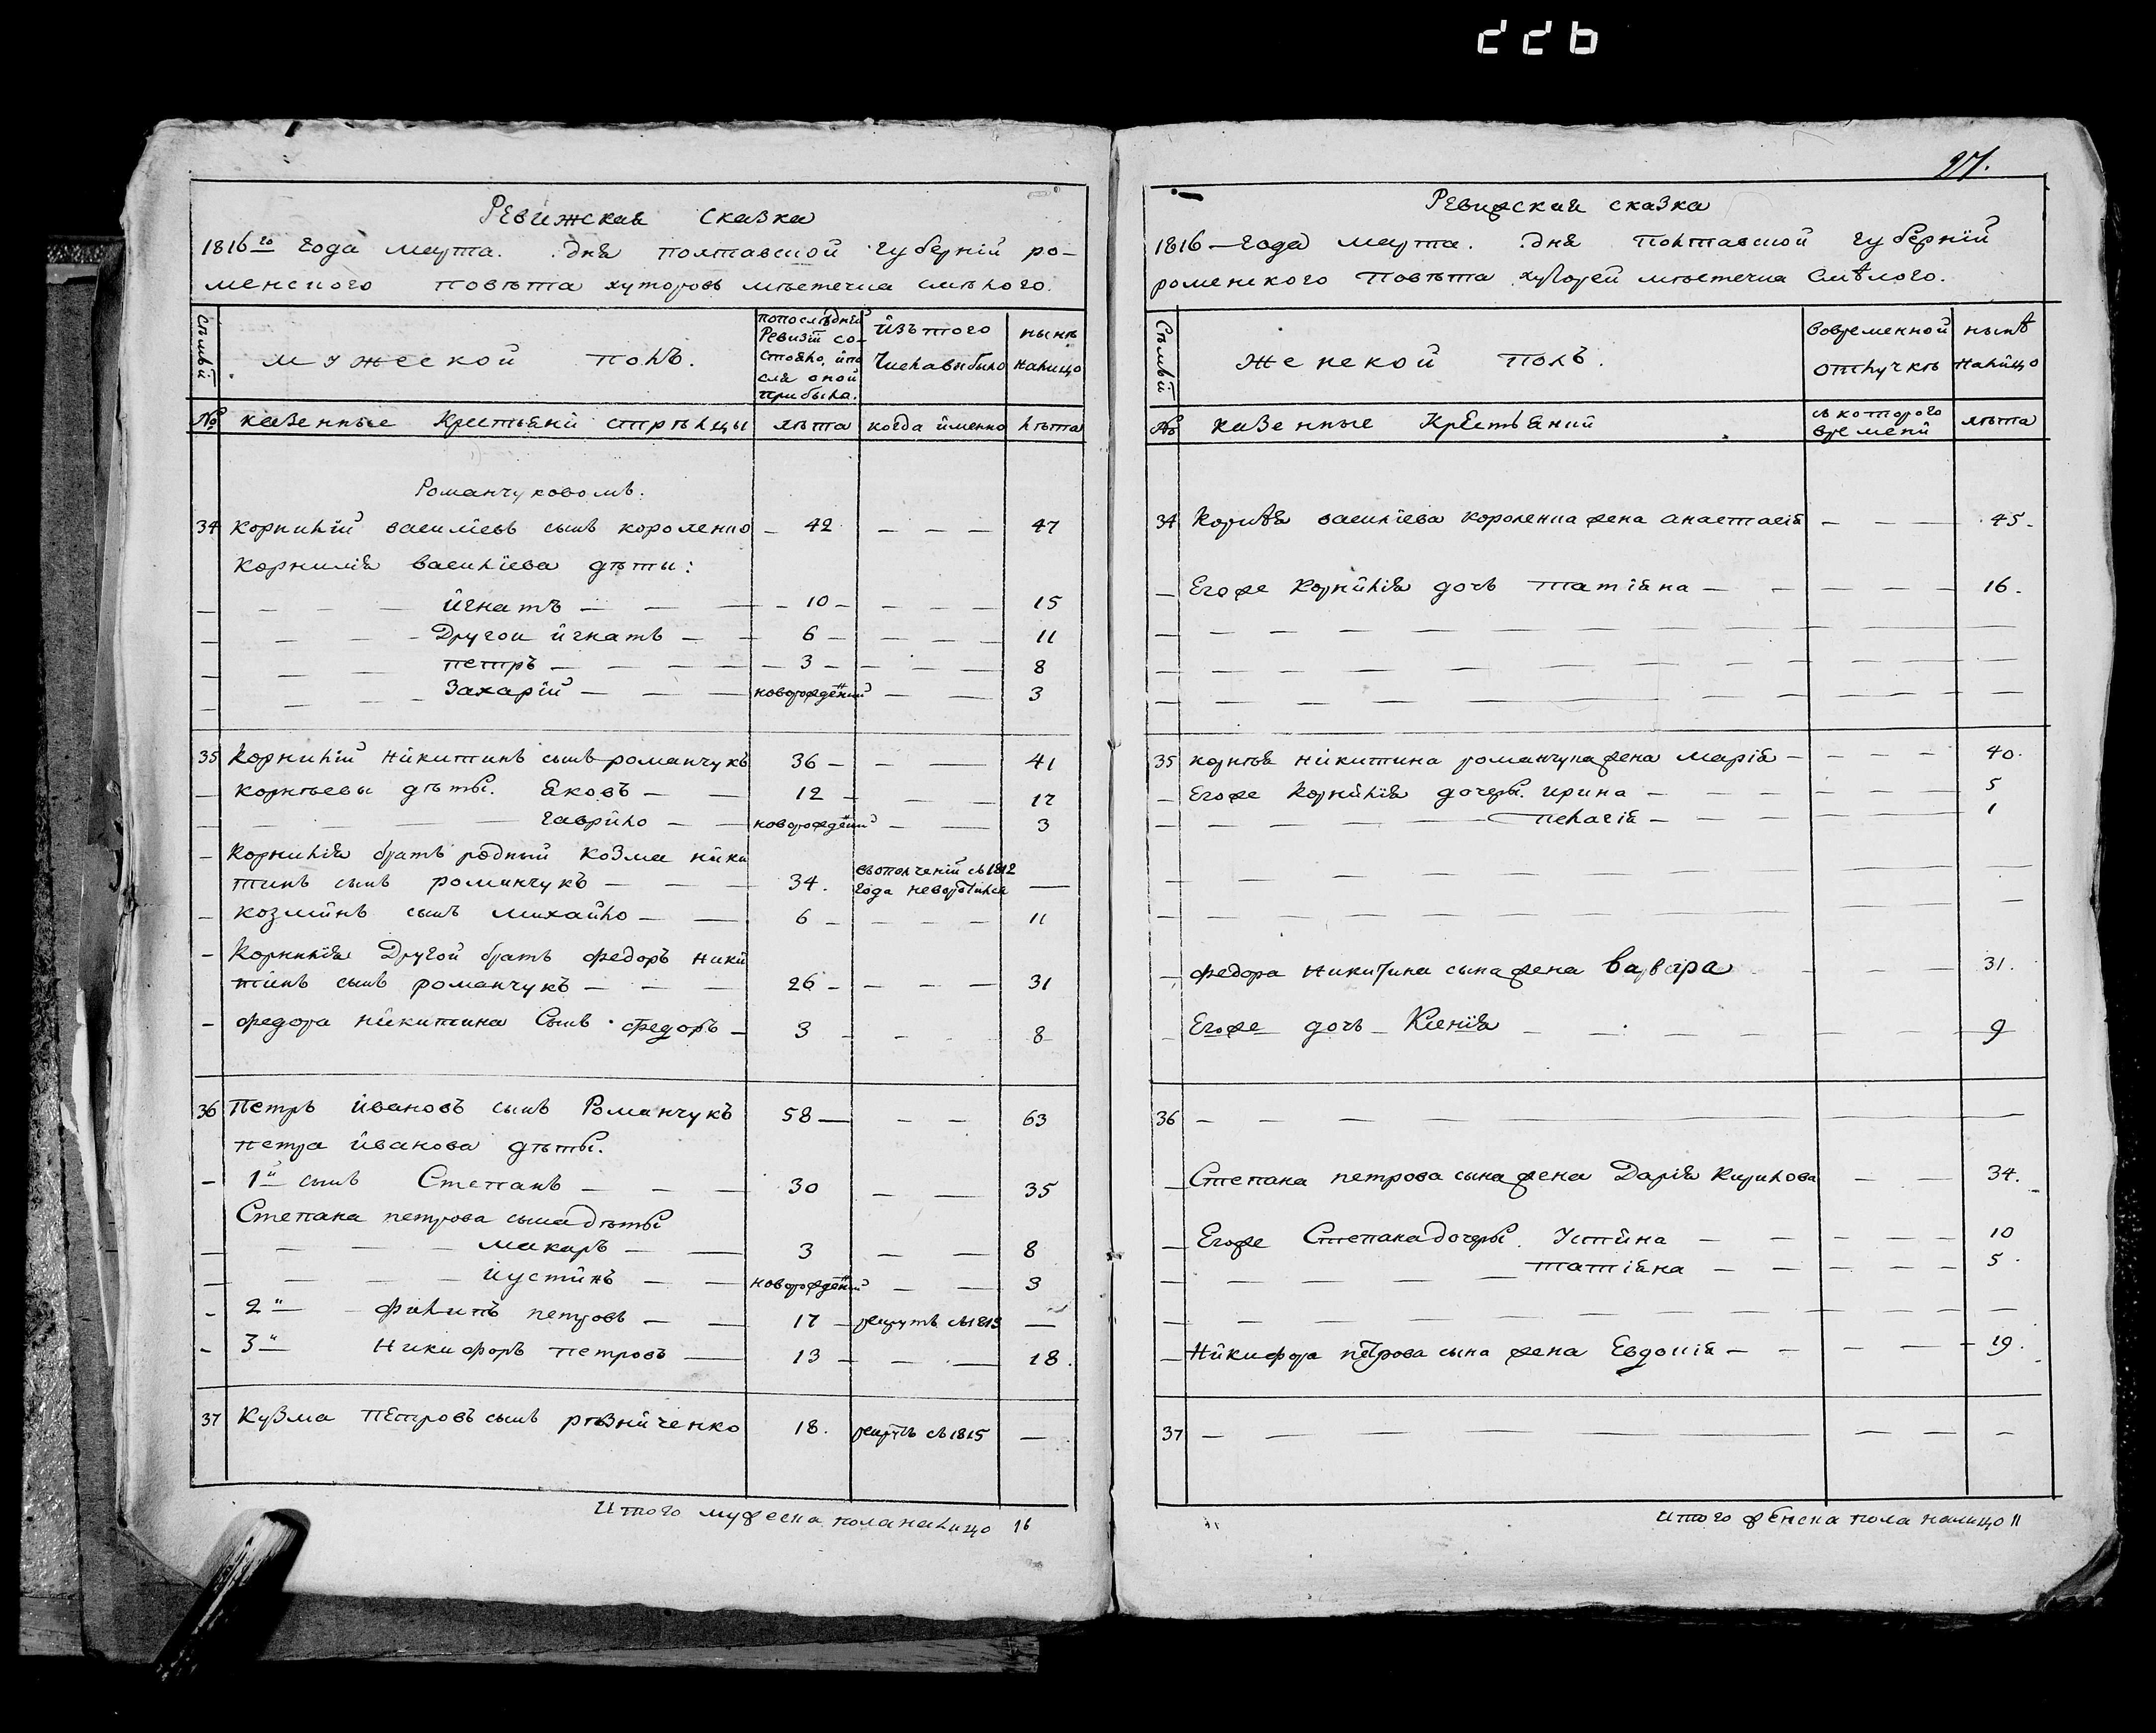 226
Ревижская сказка
1816го года марта. дня полтавской губерній ро-
менского повѣта хуторовъ мѣстечка смѣлого.
Сѣмьи
мужеской полъ.
попослѣдней Ревизіи состояло, ипосля оной прибыло.
изътого числавибыло
нынѣ налицо
№ казенные Крестьяни стрѣлцы
лѣта
когда именно
лѣта
Романчуковомъ.
34 Корнилій василіевъ сынъ короленко — 42 — — — 47
Корнилія василіева дѣти:
— — — — игнатъ — — — 10 — — — — 15
— — — — Другои игнатъ — — 6 — — — — 11
— — — — петръ — — — — 3 — — — — 8
— — — — Захарій — — — новорожденій — — 3
35 Корнилій никитинъ сынъ романчукъ 36 — — — 41
— корнѣевы дѣты. Яковъ — — 12 — — — 17
— — — — — гаврило — — новорожденій — — 3
— Корнилія братъ родный козма ники
тинъ сынъ романчукъ — — — 34. вьополченій съ1812 года неворотился —
— козминъ сынъ михайло — — 6 — — — — 11
— Корнилія Другой братъ федоръ ники
тинъ сынъ романчукъ — — — 26 — — — — 31
— федора никитина Сынъ федоръ — 3 — — — 8
36 Петръ ивановъ сынъ Романчукъ 58 — — — 63
петра иванова дѣты.
— 1й сынъ Степанъ — — — 30 — — 35
Степана петрова сына дѣты
— — — — макаръ — — 3 — — 8
— — — — иустинъ — — новорожденій — — 3
— 2й — филипъ петровъ — — 17 — рекрутъ съ1813 —
— 3й Никифоръ петровъ — 13 — — — 18.
37 Кузма петровъ сынъ рѣзниченко 18. рекрутъ съ1815 —
Итого мужеска пола налицо 16
97.
Ревижская сказка
1816 — года марта. дня полтавской губерній
роменского повѣта хуторей мѣстечка Смѣлого.
Сѣмьи
женской полъ.
вовременной отлучкѣ
нынѣ налицо
№ казенные Крестьяний
съ которого времени
лѣта
34 Корнѣя василіева короленка жена анастасія — — — 45.
— Егоже Корнилія дочь татіяна — — — — — 16.
35 корнѣя никитина романчука жена марія — — — — 40.
— Егоже Корнилія дочеры. ирина — — — — — 5
— — — — — пелагія — — — — — 1
— федора никитина сына жена варвара — — — 31.
— Егоже дочь Ксенія — — — — — 9
36 — — — — — — — —
— Степана петрова сына жена Дарія Кирилова — — 34.
— Егоже Степана дочеры. Устина — — — — — 10
— — — — — татіяна — — — — — 5.
— Никифора петрова сына жена Евдокія — — — — — 19.
37 — — — — — — — — —
итого женска пола налицо 11